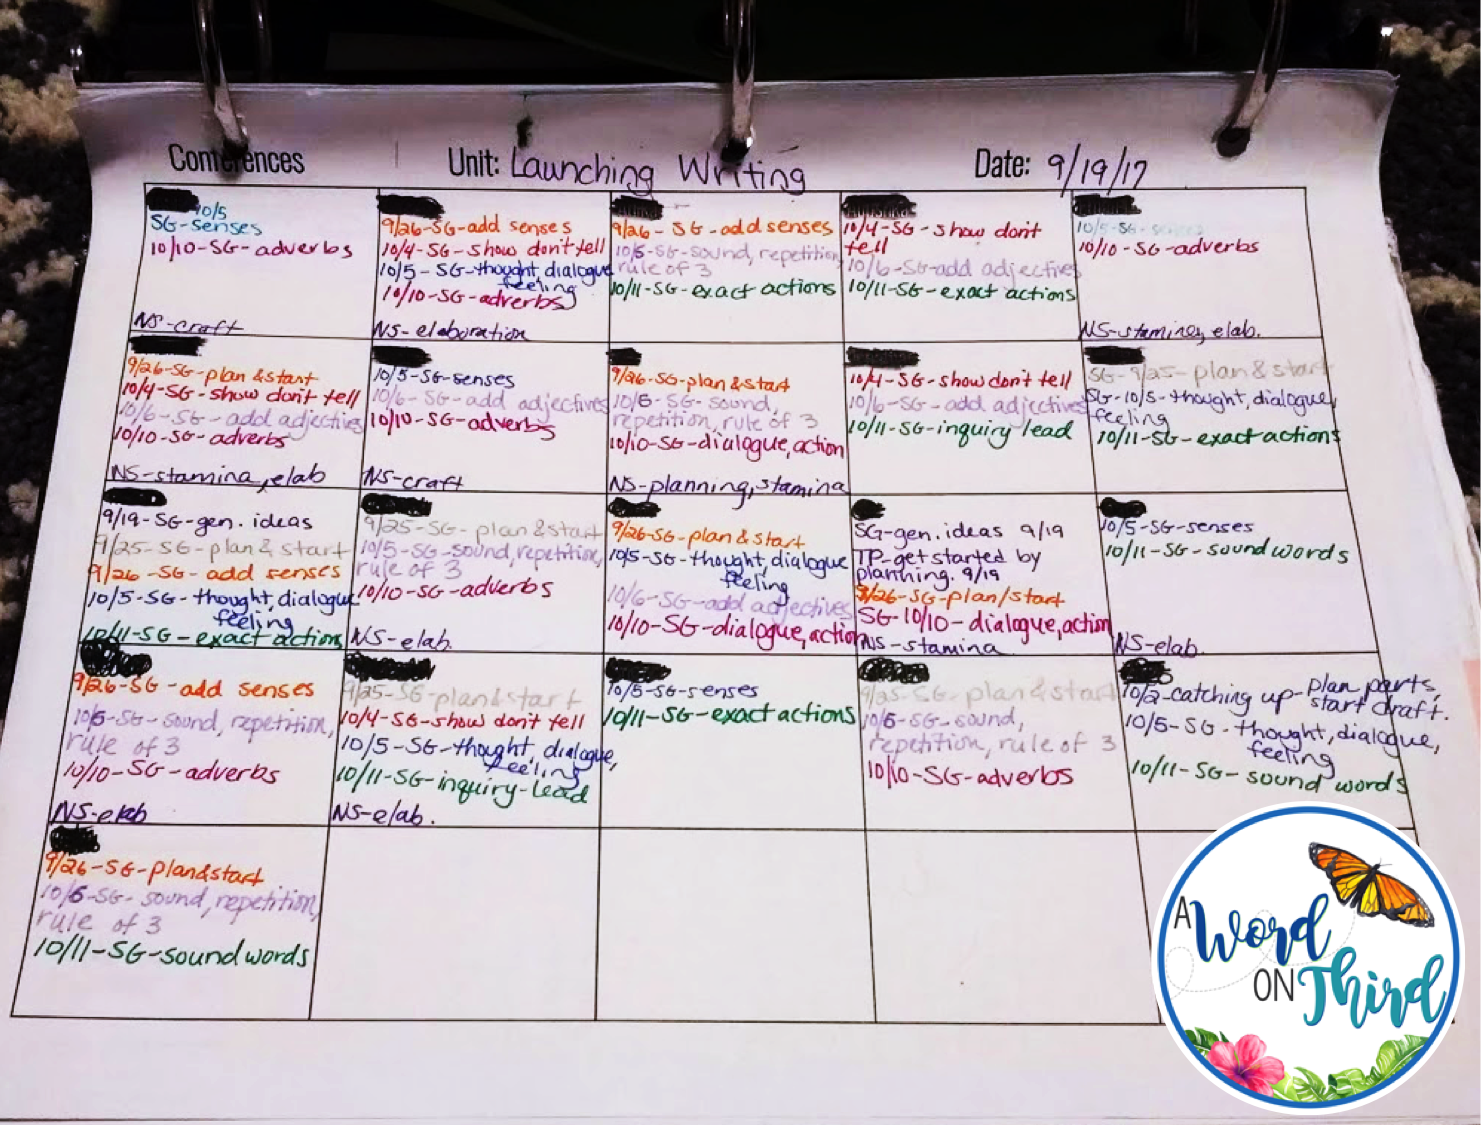 Conferences
Unit: Launching Writing
Date: 9/19/17
10/5
SG-senses
10/10-SG-adverbs
NS-craft
9/26-SG-add senses
10/4-SG-show don't tell
10/5-SG-thought, dialogue
feeling
10/10-SG-adverbs
NS-elaboration
9/26-SG-add senses
10/5-SG-sound, repetition,
rule of 3
10/11-SG-exact actions
10/4-SG-show don't
tell
10/6-SG-add adjectives
10/11-SG-exact actions
10/5-SG-senses
10/10-SG-adverbs
NS-stamina, elab.
9/26-SG-plan & start
10/4-SG-show don't tell
10/6-SG-add adjectives
10/10-SG-adverbs
NS-stamina, elab
10/5-SG-senses
10/6-SG-add adjectives
10/10-SG-adverbs
NS-craft
9/26-SG-plan & start
10/5-SG-sound,
repetition, rule of 3
10/10-SG-dialogue, action
NS-planning, stamina
10/4-SG-show don't tell
10/6-SG-add adjectives
10/11-SG-inquiry lead
SG-9/25-plan & start
SG-10/5-thought, dialogue,
feeling
10/11-SG-exact actions
9/19-SG-gen. ideas
9/25-SG-plan & start
9/26-SG-add senses
10/5-SG-thought, dialogue
feeling
10/11-SG-exact actions
9/25-SG-plan & start
10/5-SG-sound, repetition,
rule of 3
10/10-SG-adverbs
NS-elab.
9/26-SG-plan & start
10/5-SG-thought, dialogue
feeling
10/6-SG-add adjectives
10/10-SG-dialogue, action
SG-gen. ideas 9/19
TP-get started by
planning. 9/19
9/26-SG-plan/start
SG-10/10-dialogue, action
NS-stamina
10/5-SG-senses
10/11-SG-sound words
NS-elab.
9/26-SG-add senses
10/5-SG-sound, repetition,
rule of 3
10/10-SG-adverbs
NS-elab
9/25-SG-plan & start
10/4-SG-show don't tell
10/5-SG-thought, dialogue,
feeling
10/11-SG-inquiry-lead
NS-elab.
10/5-SG-senses
10/11-SG-exact actions
9/25-SG-plan & start
10/5-SG-sound,
repetition, rule of 3
10/10-SG-adverbs
10/2-catching up-plan parts,
start draft.
10/5-SG-thought, dialogue,
feeling
10/11-SG-sound words
9/26-SG-plan & start
10/5-SG-sound, repetition,
rule of 3
10/11-SG-sound words
A Word
ON Third